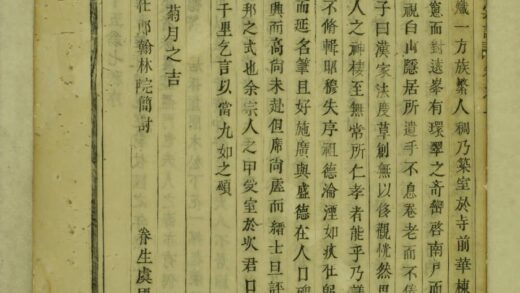 織一方族繁人稠乃築室於寺前華棟
窻而對遠峯有環翠之奇啓南戶而
視白山隱居所遺手不息卷老而不倦
子曰漢家法度草創無以俢觀恍然思
人之神棲至無常所仁孝者能乎乃謀
不脩輯昭穆失序祖德淪湮如狄壯
而延名筆且好施廣與盛德在人口碑
興而高尚未赴但席尚虛而縉士旦評
邦之式也余宗人之甲愛室於坎君口
千里乞言以當九如之頌
菊月之吉
仕郎翰林院簡討 眷生虞